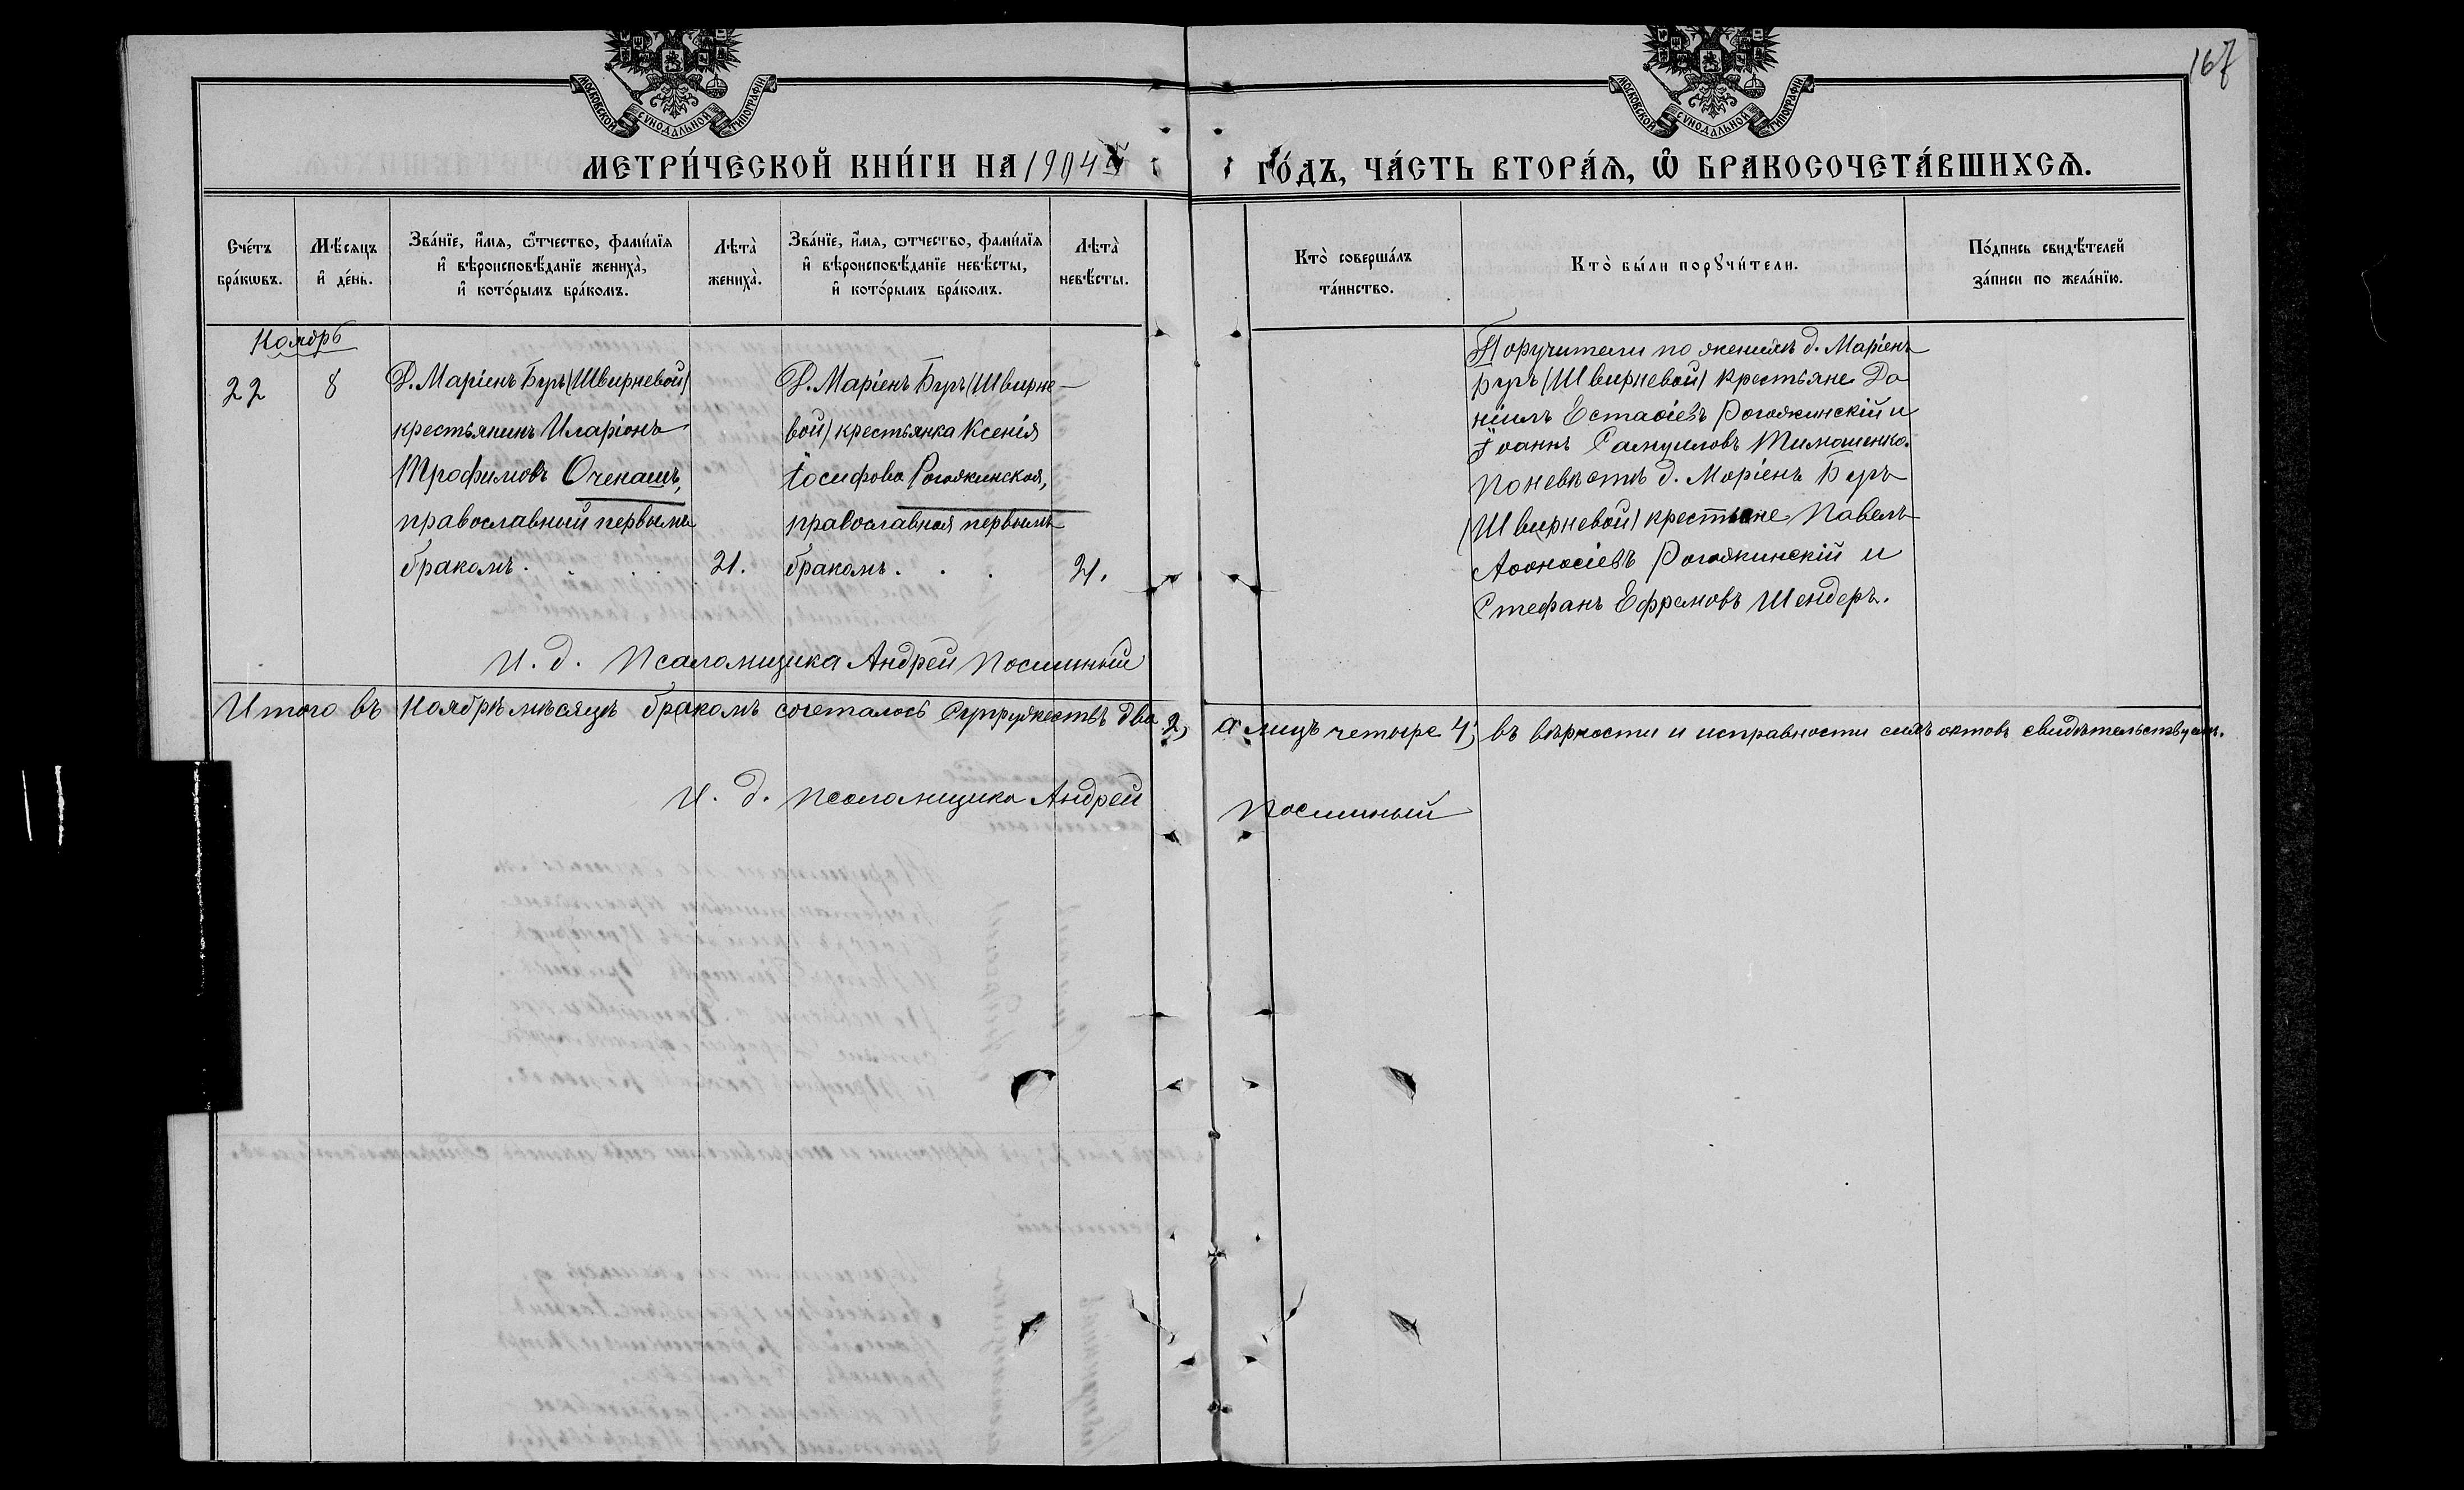 167
МОСКОВСКОЙ СѴНОДАЛЬНОЙ ТИПОГРАФІИ
МОСКОВСКОЙ СѴНОДАЛЬНОЙ ТИПОГРАФІИ
МЕТРИ́ЧЕСКОЙ КНИ́ГИ НА 1904
ГО́ДЪ, ЧА́СТЬ ВТОРА́Ѧ, Ѽ БРАКОСОЧЕТА́ВШИХСѦ.
Сче́тъ
бра́кѡвъ.
Мѣ́сяцъ
и҆ де́нь.
Зва́нїе, и҆́мя, ѻ҆́тчество, фами́лїя
и҆ вѣроисповѣ́данїе жениха̀,
и҆ кото́рымъ бра́комъ.
Лѣта̀
жениха̀.
Зва́нїе, и҆́мя, ѻтчество, фами́лїя
и҆ вѣроисповѣ́данїе невѣ́сты,
и҆ кото́рымъ бра́комъ.
Лѣта̀
невѣ́сты.
Кто̀ соверша́лъ
та́инство.
Кто̀ бы́ли порꙋчи́тели.
По́дпись свидѣ́телей
за́писи по жела́нїю.
Ноябрь
22
8
Д. Маріенъ Буръ (Швирневой)
крестьянинъ Иларіонъ
Трофимовъ Оченашъ,
православный первымъ
бракомъ. . . . 21.
Д. Маріенъ Буръ (Швирне-
вой) крестьянка Ксенія
Іосифова Рогожинская,
православная первымъ
бракомъ. . . 21.
Поручители по женихѣ д. Маріенъ
Буръ (Швирневой) крестьяне Да
ніилъ Естаѳіевъ Рогожинскій и
Іоаннъ Самуиловъ Тимошенко.
По невѣстѣ д. Маріенъ Буръ
(Швирневой) крестьяне Павелъ
Аѳонасіевъ Рогожинскій и
Стефанъ Ефремовъ Шендеръ.
И. д. Псаломщика Андрей
Итого въ Ноябрѣ мѣсяцѣ бракомъ сочеталось Супружествъ два 2, а лицъ четыре 4, въ вѣрности и исправности сихъ актовъ свидѣтельствуемъ.
И. д. псаломщика Андрей